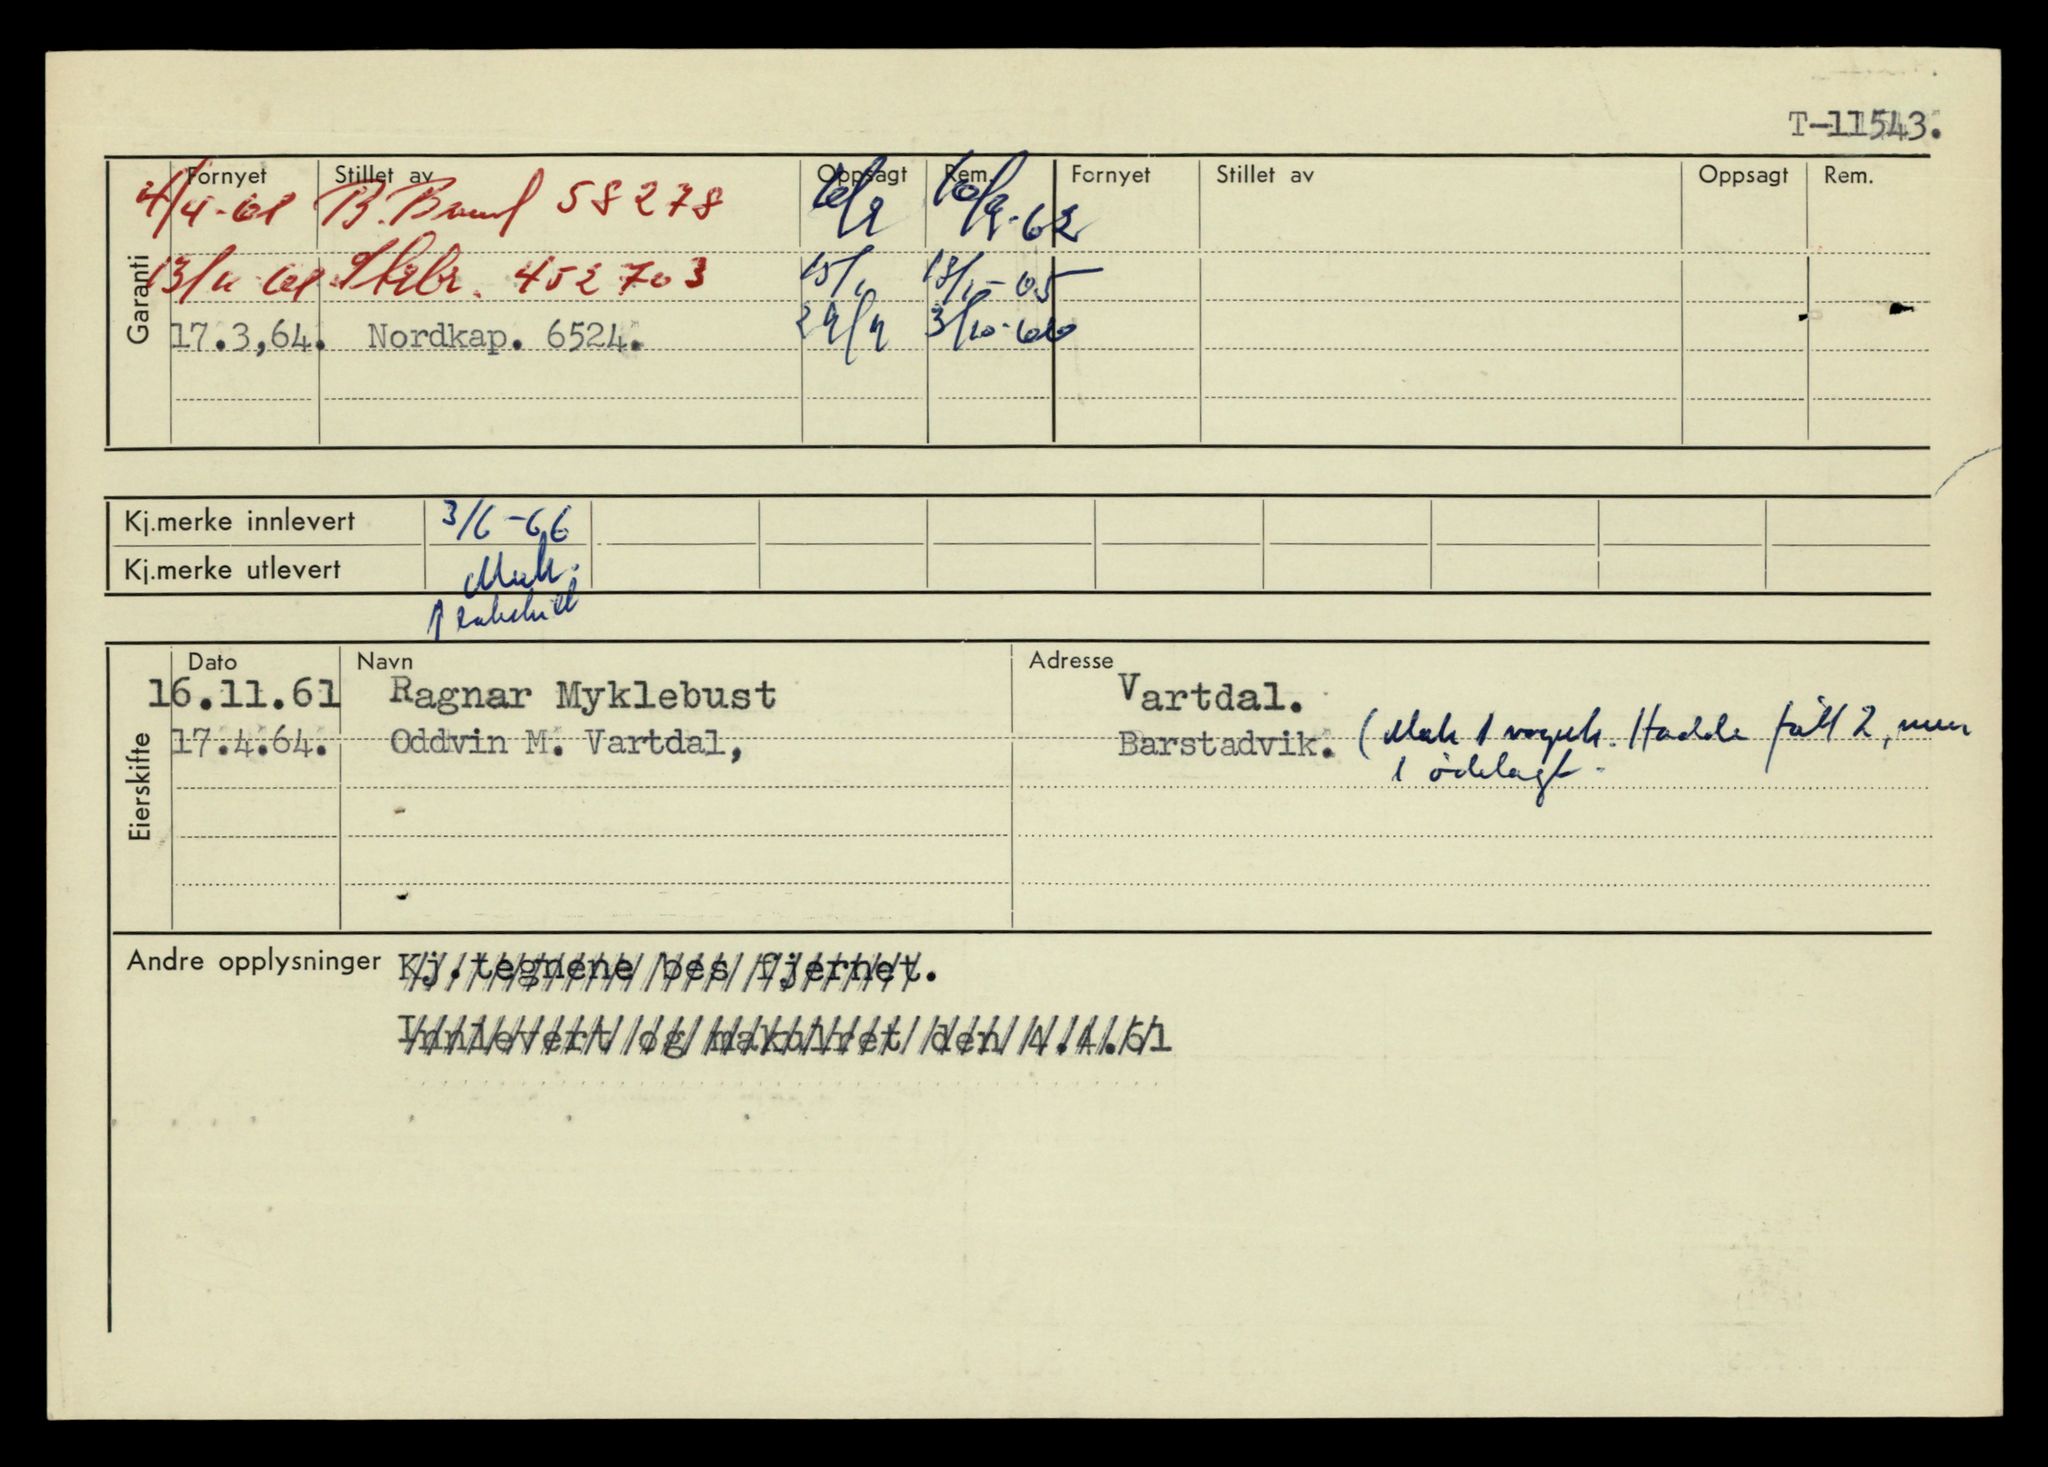 T-11543.
Fornyet Stillet av Oppsagt Rem. Fornyet Stillet av Oppsagt Rem.
4/4-61 B. Brand 58278 10/9-62
Garanti
452703 15/1
17.3,64. Nordkap. 6524. 29/9 3/10-66
Kj.merke innlevert 3/6-66
Kj.merke utlevert Mak.
1
Dato Navn Adresse
Eierskifte
16.11.61 Ragnar Myklebust Vartdal.
17.4.64. Oddvin M. Vartdal, Barstadvik. (Mak 1 vognk. Hadde fått 2, men
1 ödelagt.
Andre opplysninger Kj.tegnene bes fjernet.
Innlevert og makulret den 4.4.61